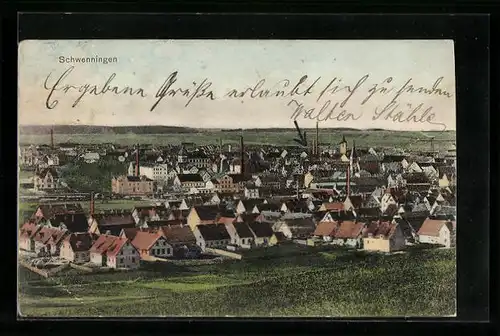 Schwenningen
Ergebene Grüße erlaubt sich zu senden
Walter Stähle